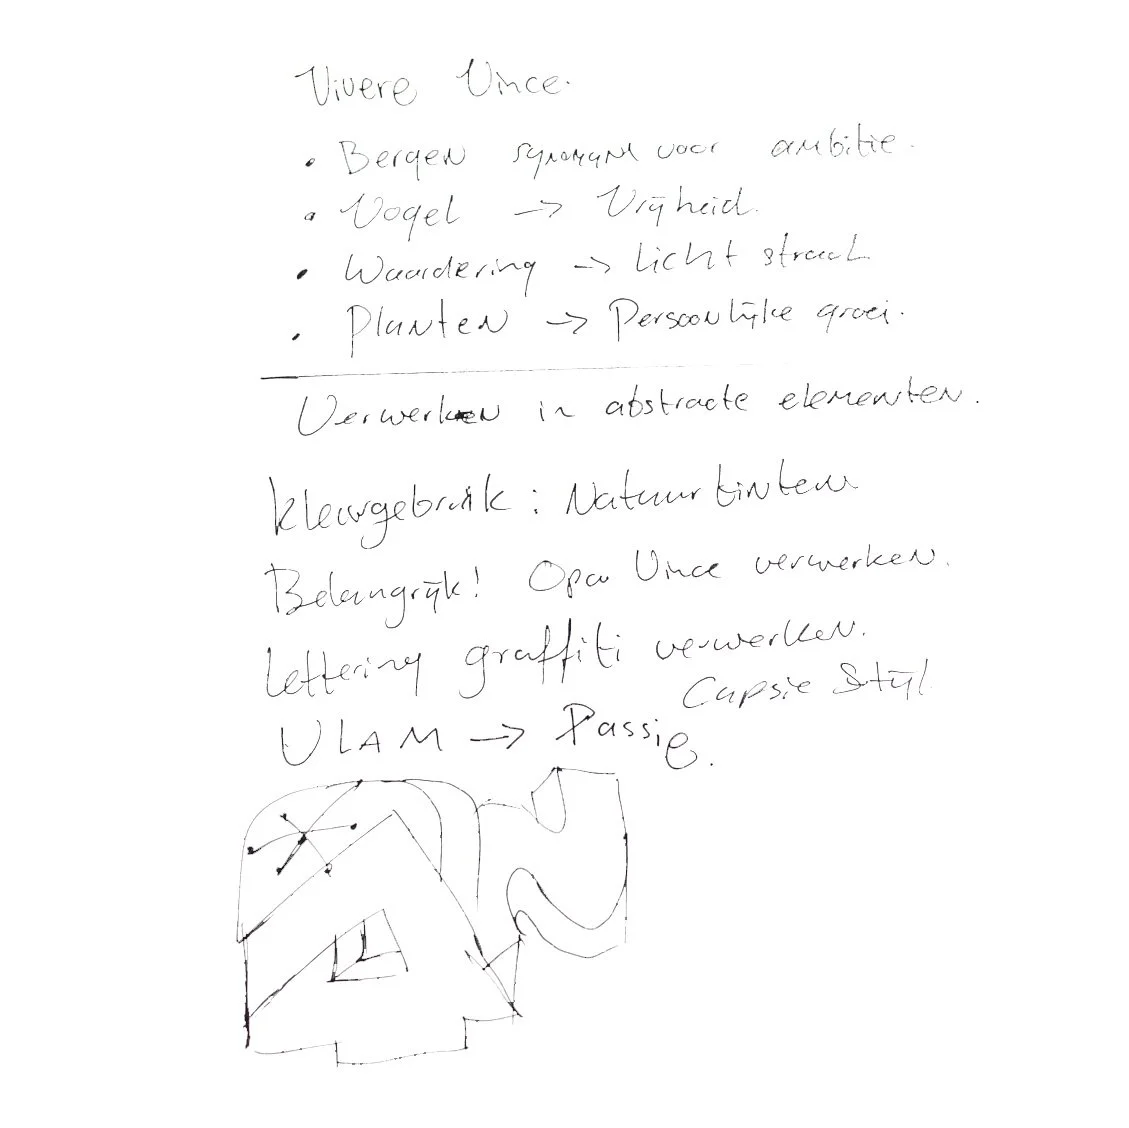 Vivere Vince.
• Bergen synoniem voor ambitie.
• Vogel -> Vrijheid.
• Waardering -> lichtstraal
• Planten -> Persoonlijke groei.
Verwerken in abstracte elementen.
Kleurgebruik: Natuurtinten
Belangrijk! Opa Vince verwerken.
Lettering graffiti verwerken.
Capsie Stijl
VLAM -> Passie.